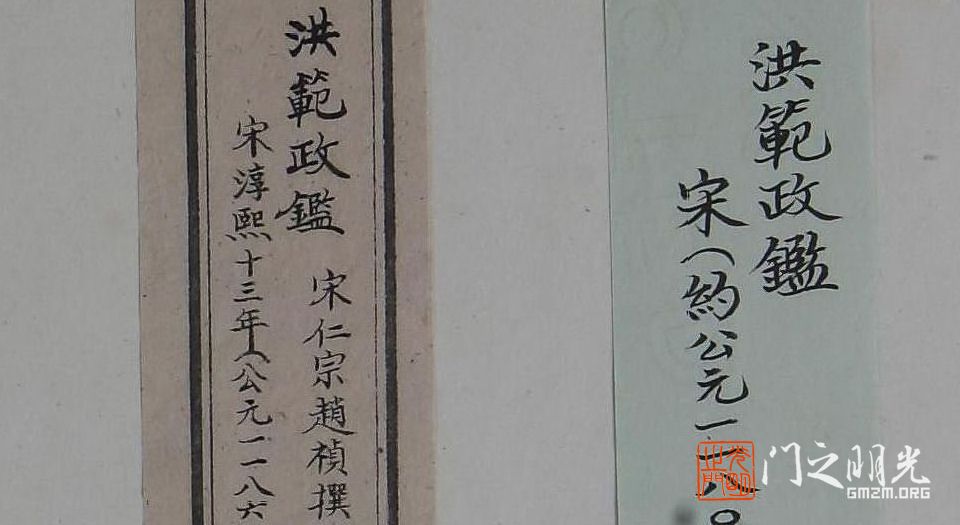 洪範政鑑
宋（約公元一一八〇
洪範政鑑 宋仁宗趙禎撰
宋淳熙十三年（公元一一八六
门之明光
GMZM.ORG